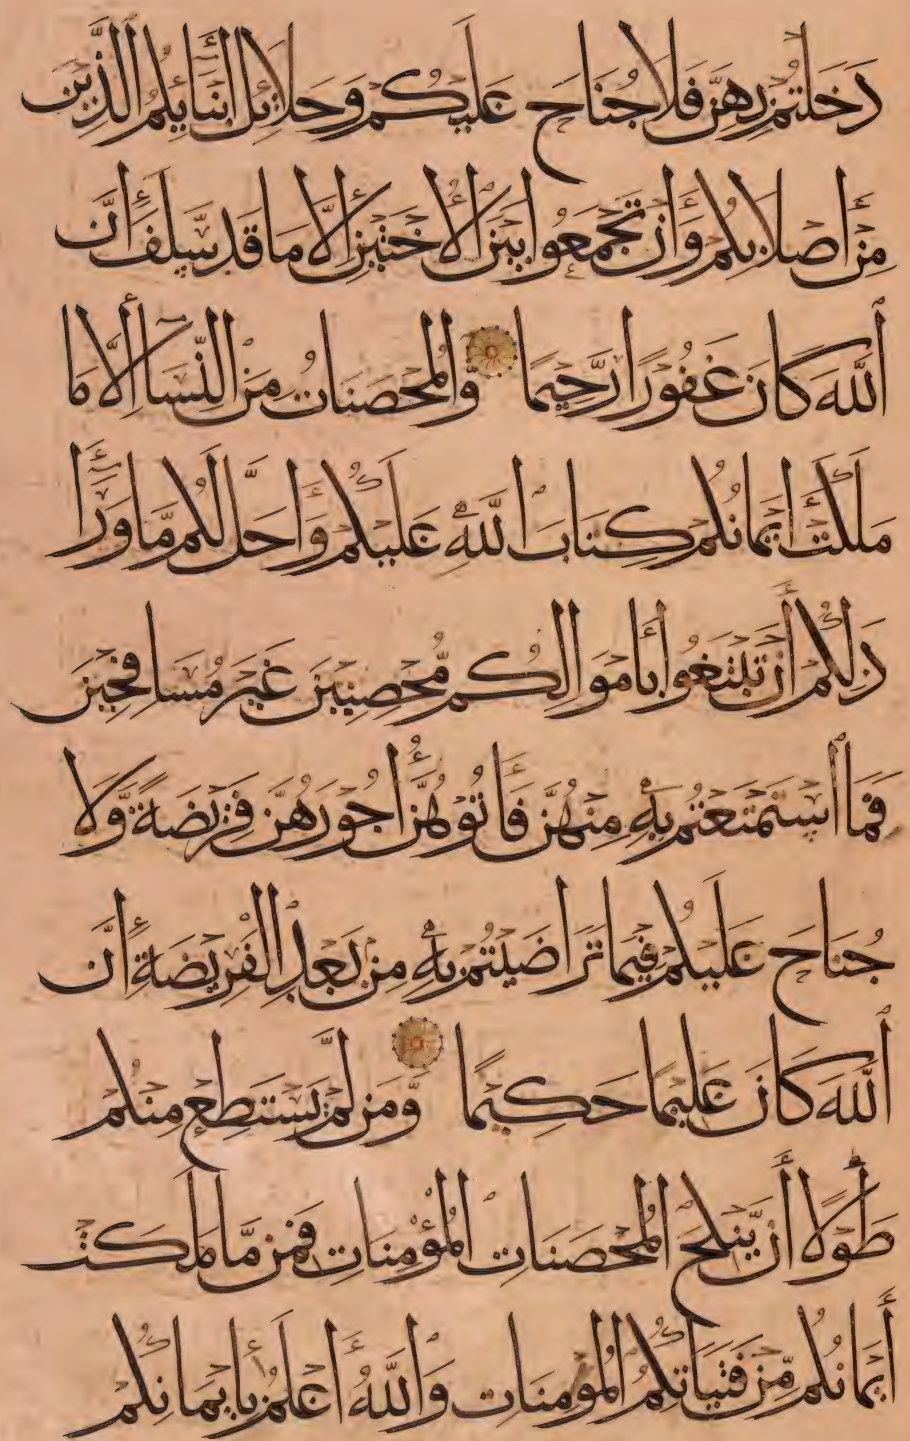 دَخَلْتُمْ بِهِنَّ فَلَا جُنَاحَ عَلَيْكُمْ وَحَلَائِلُ أَبْنَائِكُمُ الَّذِينَ
مِنْ أَصْلَابِكُمْ وَأَنْ تَجْمَعُوا بَيْنَ الْأُخْتَيْنِ إِلَّا مَا قَدْ سَلَفَ إِنَّ
اللَّهَ كَانَ غَفُورًا رَحِيمًا وَالْمُحْصَنَاتُ مِنَ النِّسَاءِ إِلَّا مَا
مَلَكَتْ أَيْمَانُكُمْ كِتَابَ اللَّهِ عَلَيْكُمْ وَأُحِلَّ لَكُمْ مَا وَرَاءَ
ذَلِكُمْ أَنْ تَبْتَغُوا بِأَمْوَالِكُمْ مُحْصِنِينَ غَيْرَ مُسَافِحِينَ
فَمَا اسْتَمْتَعْتُمْ بِهِ مِنْهُنَّ فَآتُوهُنَّ أُجُورَهُنَّ فَرِيضَةً وَلَا
جُنَاحَ عَلَيْكُمْ فِيمَا تَرَاضَيْتُمْ بِهِ مِنْ بَعْدِ الْفَرِيضَةِ إِنَّ
اللَّهَ كَانَ عَلِيمًا حَكِيمًا وَمَنْ لَمْ يَسْتَطِعْ مِنْكُمْ
طَوْلًا أَنْ يَنْكِحَ الْمُحْصَنَاتِ الْمُؤْمِنَاتِ فَمِنْ مَا مَلَكَتْ
أَيْمَانُكُمْ مِنْ فَتَيَاتِكُمُ الْمُؤْمِنَاتِ وَاللَّهُ أَعْلَمُ بِإِيمَانِكُمْ